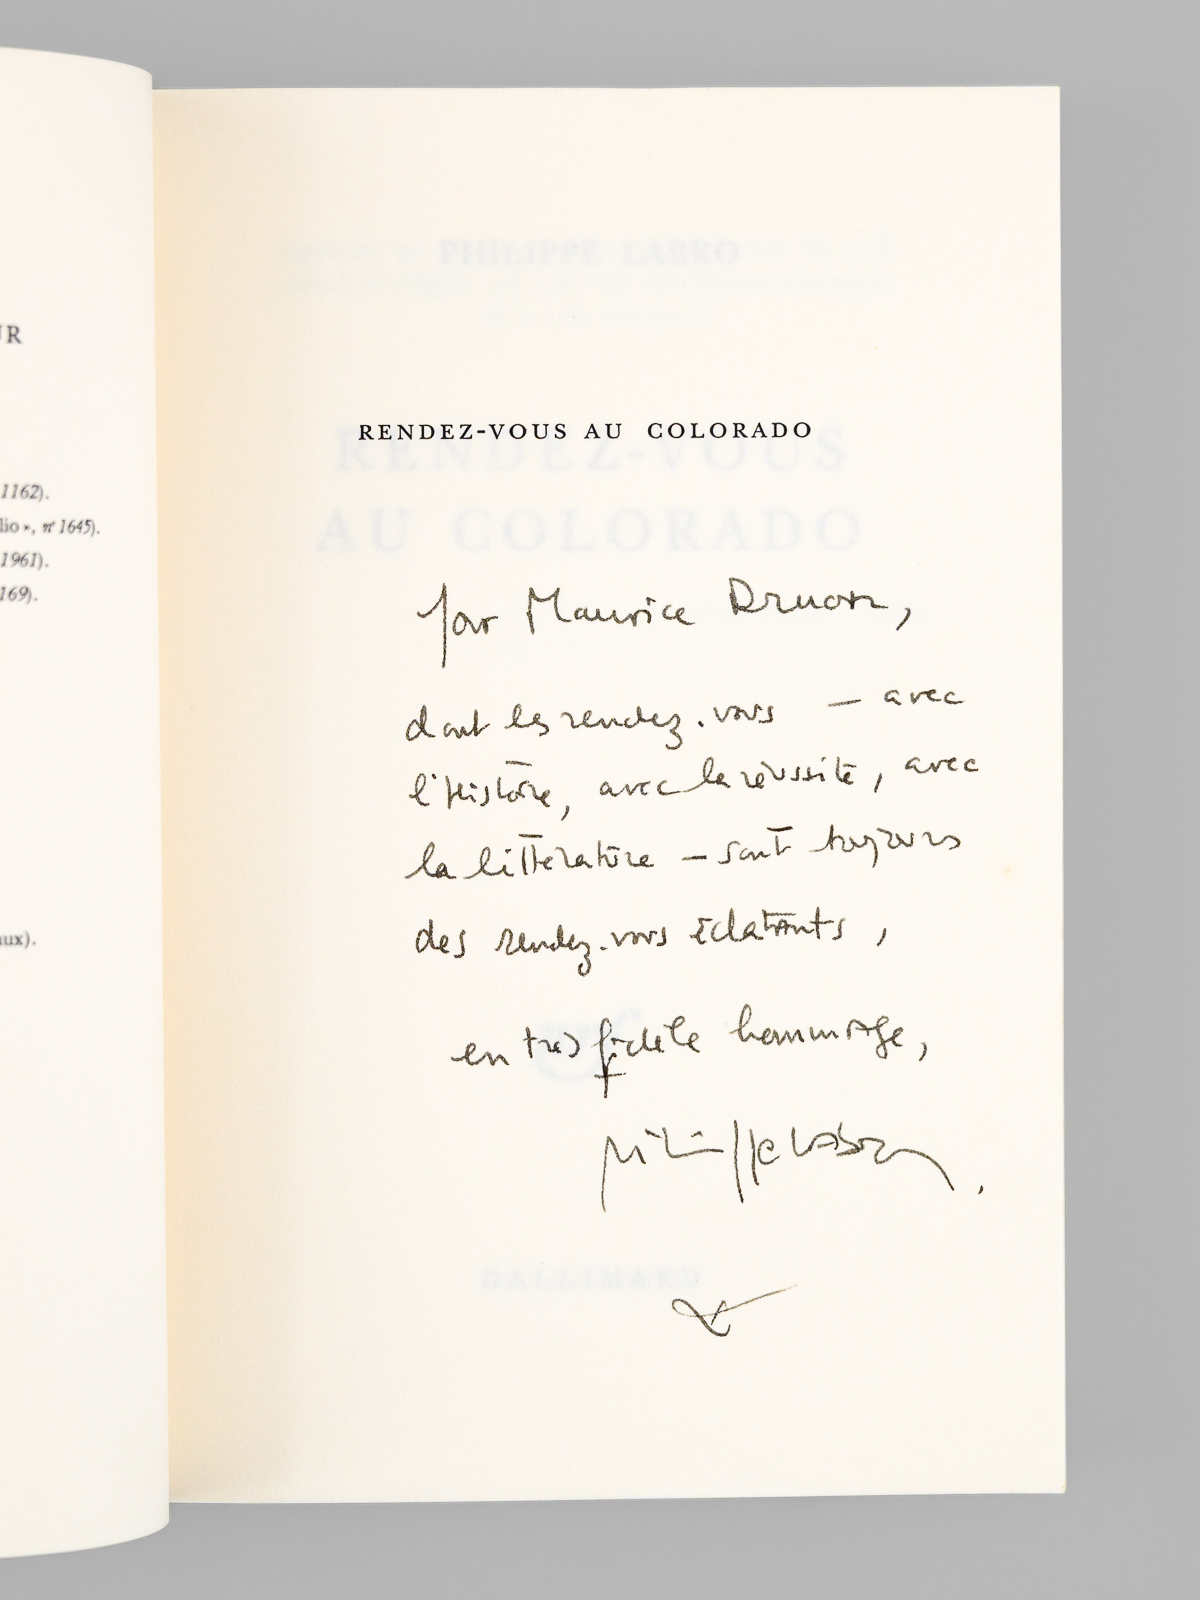 UR
1162).
lio », n° 1645).
1961).
169).
aux).
PHILIPPE LABRO
RENDEZ-VOUS AU COLORADO
RENDEZ-VOUS
AU COLORADO
pour Maurice Druon,
dont les rendez-vous — avec
l'Histoire, avec la réussite, avec
la littérature — sont toujours
des rendez-vous éclatants,
en très fidèle hommage,
Philippe Labro.
GALLIMARD